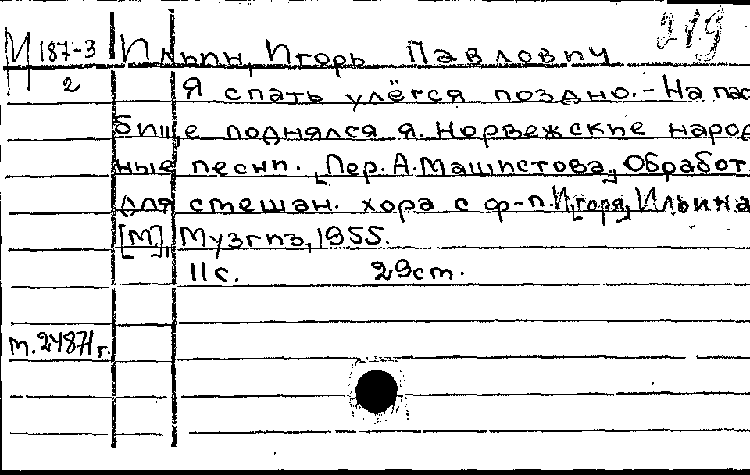 М 187-3 Ильин, Игорь Павлович 219
2
Я спать улёгся поздно. - На пас
бище поднялся я. Норвежские народ
ные песни. [Пер. А. Машистова]. Обработ.
для смешан. хора с ф-п. И[горя] Ильина
[М], Музгиз, 1955.
11 с. 29 см.
м. 24871 г.